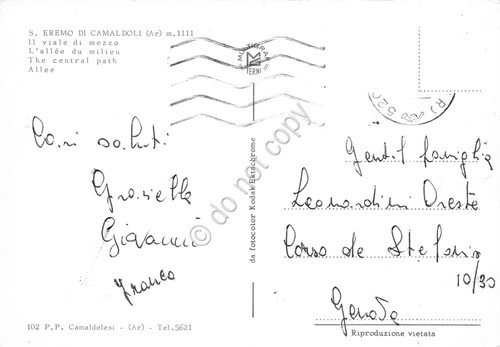 S. EREMO DI CAMALDOLI (Ar) m.1111
Il viale di mezzo
L'allée du milieu
The central path
Allee
TERNI
Cari saluti
Graziella
Giovanni
Franco
102 P.P. Camaldolesi - (Ar) - Tel.5621
da fotocolor Kodak Ektachrome
do not copy
Gentil famiglia
Leonardini Oreste
Corso de Stefanis
10/30
Genova
Riproduzione vietata